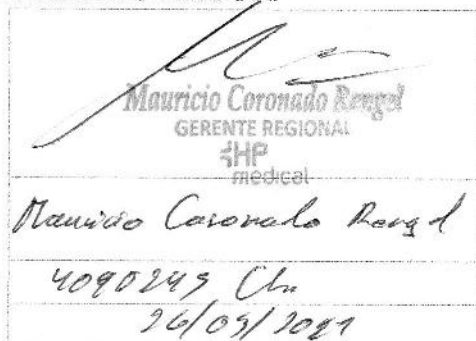 Mauricio Coronado Rengel
GERENTE REGIONAL
HP
medical
Mauricio Coronado Rengel
4090245 Ch.
26/05/2021